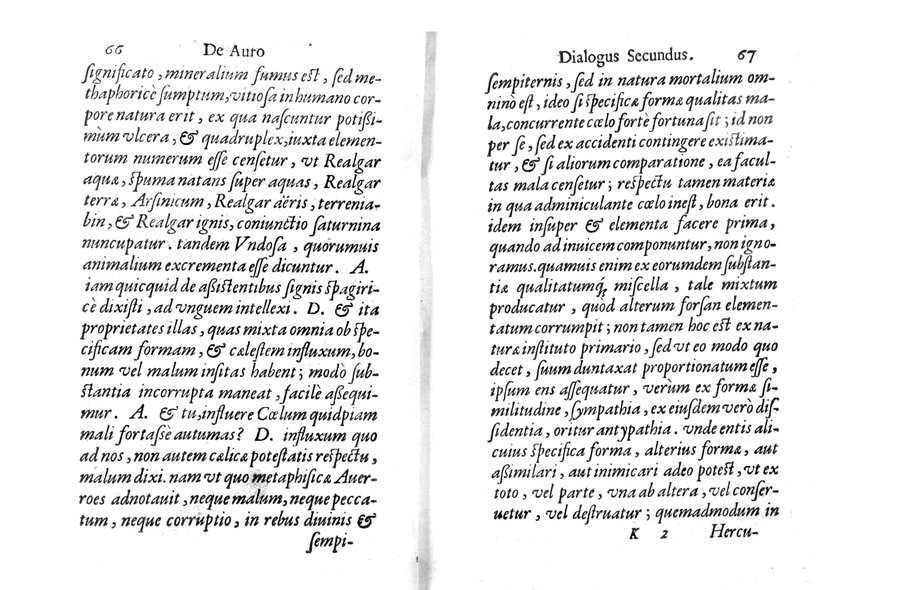 66 De Auro
ſignificato, mineralium fumus eſt, ſed me-
thaphoricè ſumptum, vitioſa in humano cor-
pore natura erit, ex qua naſcuntur potiſſi-
mùm vlcera, & quadruplex, iuxta elemen-
torum numerum eſſe cenſetur, vt Realgar
aquæ, ſpuma natans ſuper aquas, Realgar
terræ, Arſinicum, Realgar aëris, terrenia-
bin, & Realgar ignis, coniunctio ſaturnina
nuncupatur. tandem Vndoſa, quorumuis
animalium excrementa eſſe dicuntur. A.
iam quicquid de aſſiſtentibus ſignis ſpagiri-
cè dixiſti, ad vnguem intellexi. D. & ita
proprietates illas, quas mixta omnia ob ſpe-
cificam formam, & cæleſtem influxum, bo-
num vel malum inſitas habent; modò ſub-
ſtantia incorrupta maneat, facilè aſſequi-
mur. A. & tu, influere Cœlum quidpiam
mali fortaſſè autumas? D. influxum quo
ad nos, non autem cælicæ poteſtatis reſpectu,
malum dixi. nam vt quo metaphiſicæ Auer-
roes adnotauit, neque malum, neque pecca-
tum, neque corruptio, in rebus diuinis &
ſempi-
Dialogus Secundus. 67
ſempiternis, ſed in natura mortalium om-
ninò eſt, ideo ſi ſpecificæ formæ qualitas ma-
la, concurrente cœlo fortè fortuna ſit; id non
per ſe, ſed ex accidenti contingere exiſtima-
tur, & ſi aliorum comparatione, ea facul-
tas mala cenſetur; reſpectu tamen materiæ
in qua adminiculante cœlo ineſt, bona erit.
idem inſuper & elementa facere prima,
quando ad inuicem componuntur, non igno-
ramus. quamuis enim ex eorumdem ſubſtan-
tiæ qualitatumq; miſcella, tale mixtum
producatur, quòd alterum forſan elemen-
tatum corrumpit; non tamen hoc eſt ex na-
turæ inſtituto primario, ſed vt eo modo quo
decet, ſuum duntaxat proportionatum eſſe,
ipſum ens aſſequatur, verùm ex formæ ſi-
militudine, ſympathia, ex eiuſdem verò diſ-
ſidentia, oritur antypathia. vnde entis ali-
cuius ſpecifica forma, alterius formæ, aut
aſſimilari, aut inimicari adeo poteſt, vt ex
toto, vel parte, vna ab altera, vel conſer-
uetur, vel deſtruatur; quemadmodum in
K 2 Hercu-